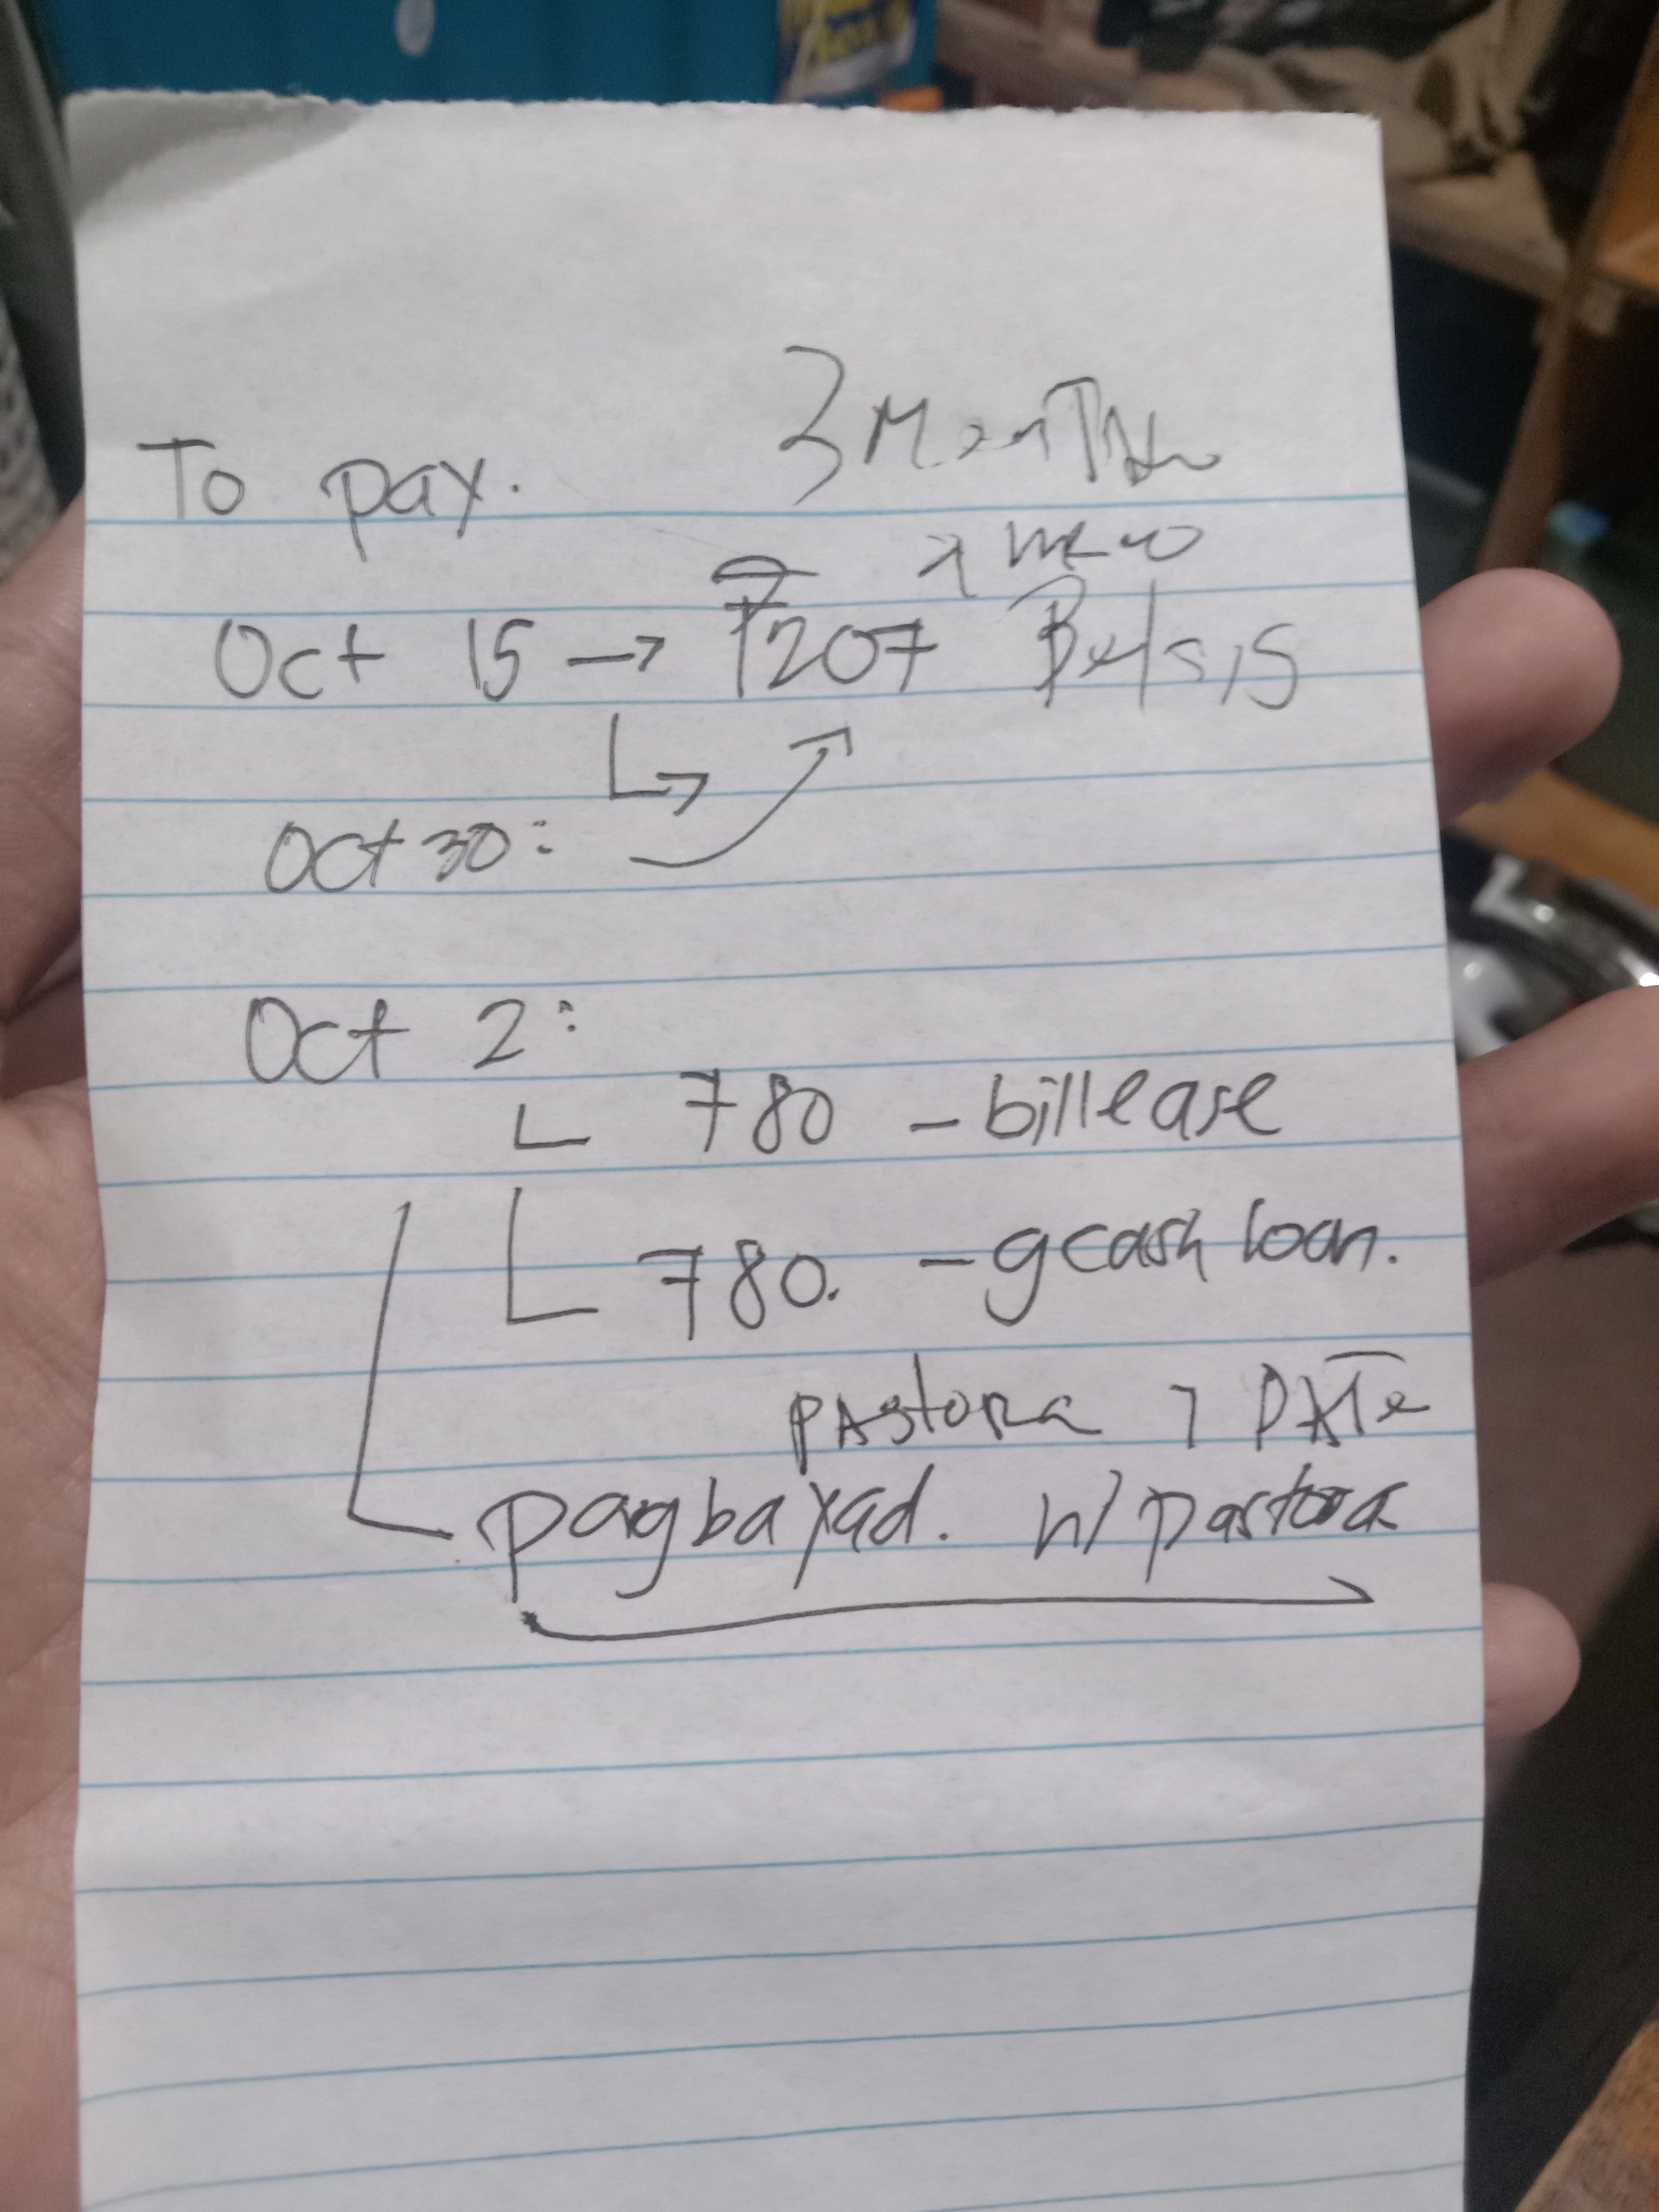 3 Months
To pay.
Oct 15 → ₱207
Oct 30:
Oct 2:
780 - billease
780. - gcash loan.
pastora 7 DATe
pagbayad. n/ pastora